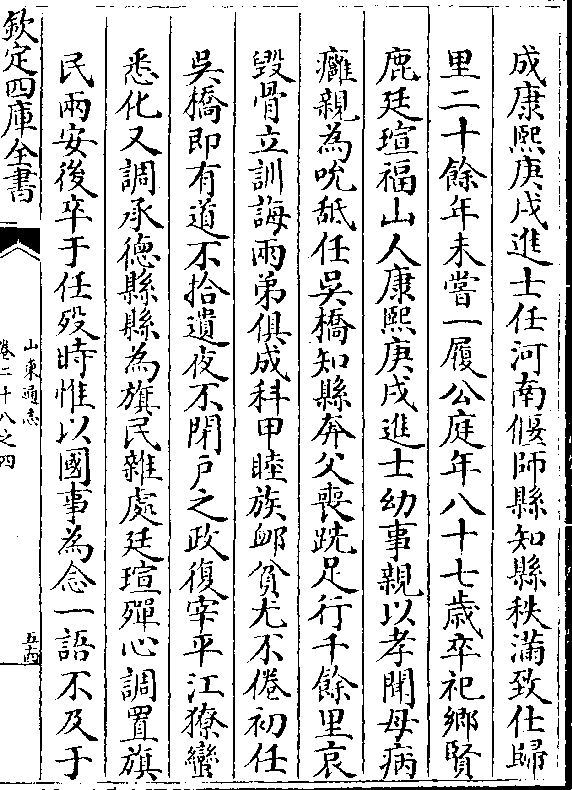 成康熙庚戌進士任河南偃師縣知縣秩滿致仕歸
里二十餘年未嘗一履公庭年八十七歲卒祀鄉賢
鹿廷瑄福山人康熙庚戌進士幼事親以孝聞母病
癰親為吮舐任吳橋知縣奔父喪跣足行千餘里哀
毀骨立訓誨兩弟俱成科甲睦族䘏貧尤不倦初任
吳橋即有道不拾遺夜不閉戶之政復宰平江獠蠻
悉化又調承德縣縣為旗民雜處廷瑄殫心調置旗
民兩安後卒于任殁時惟以國事為念一語不及于
欽定四庫全書
山東通志
卷二十八之四
五十四